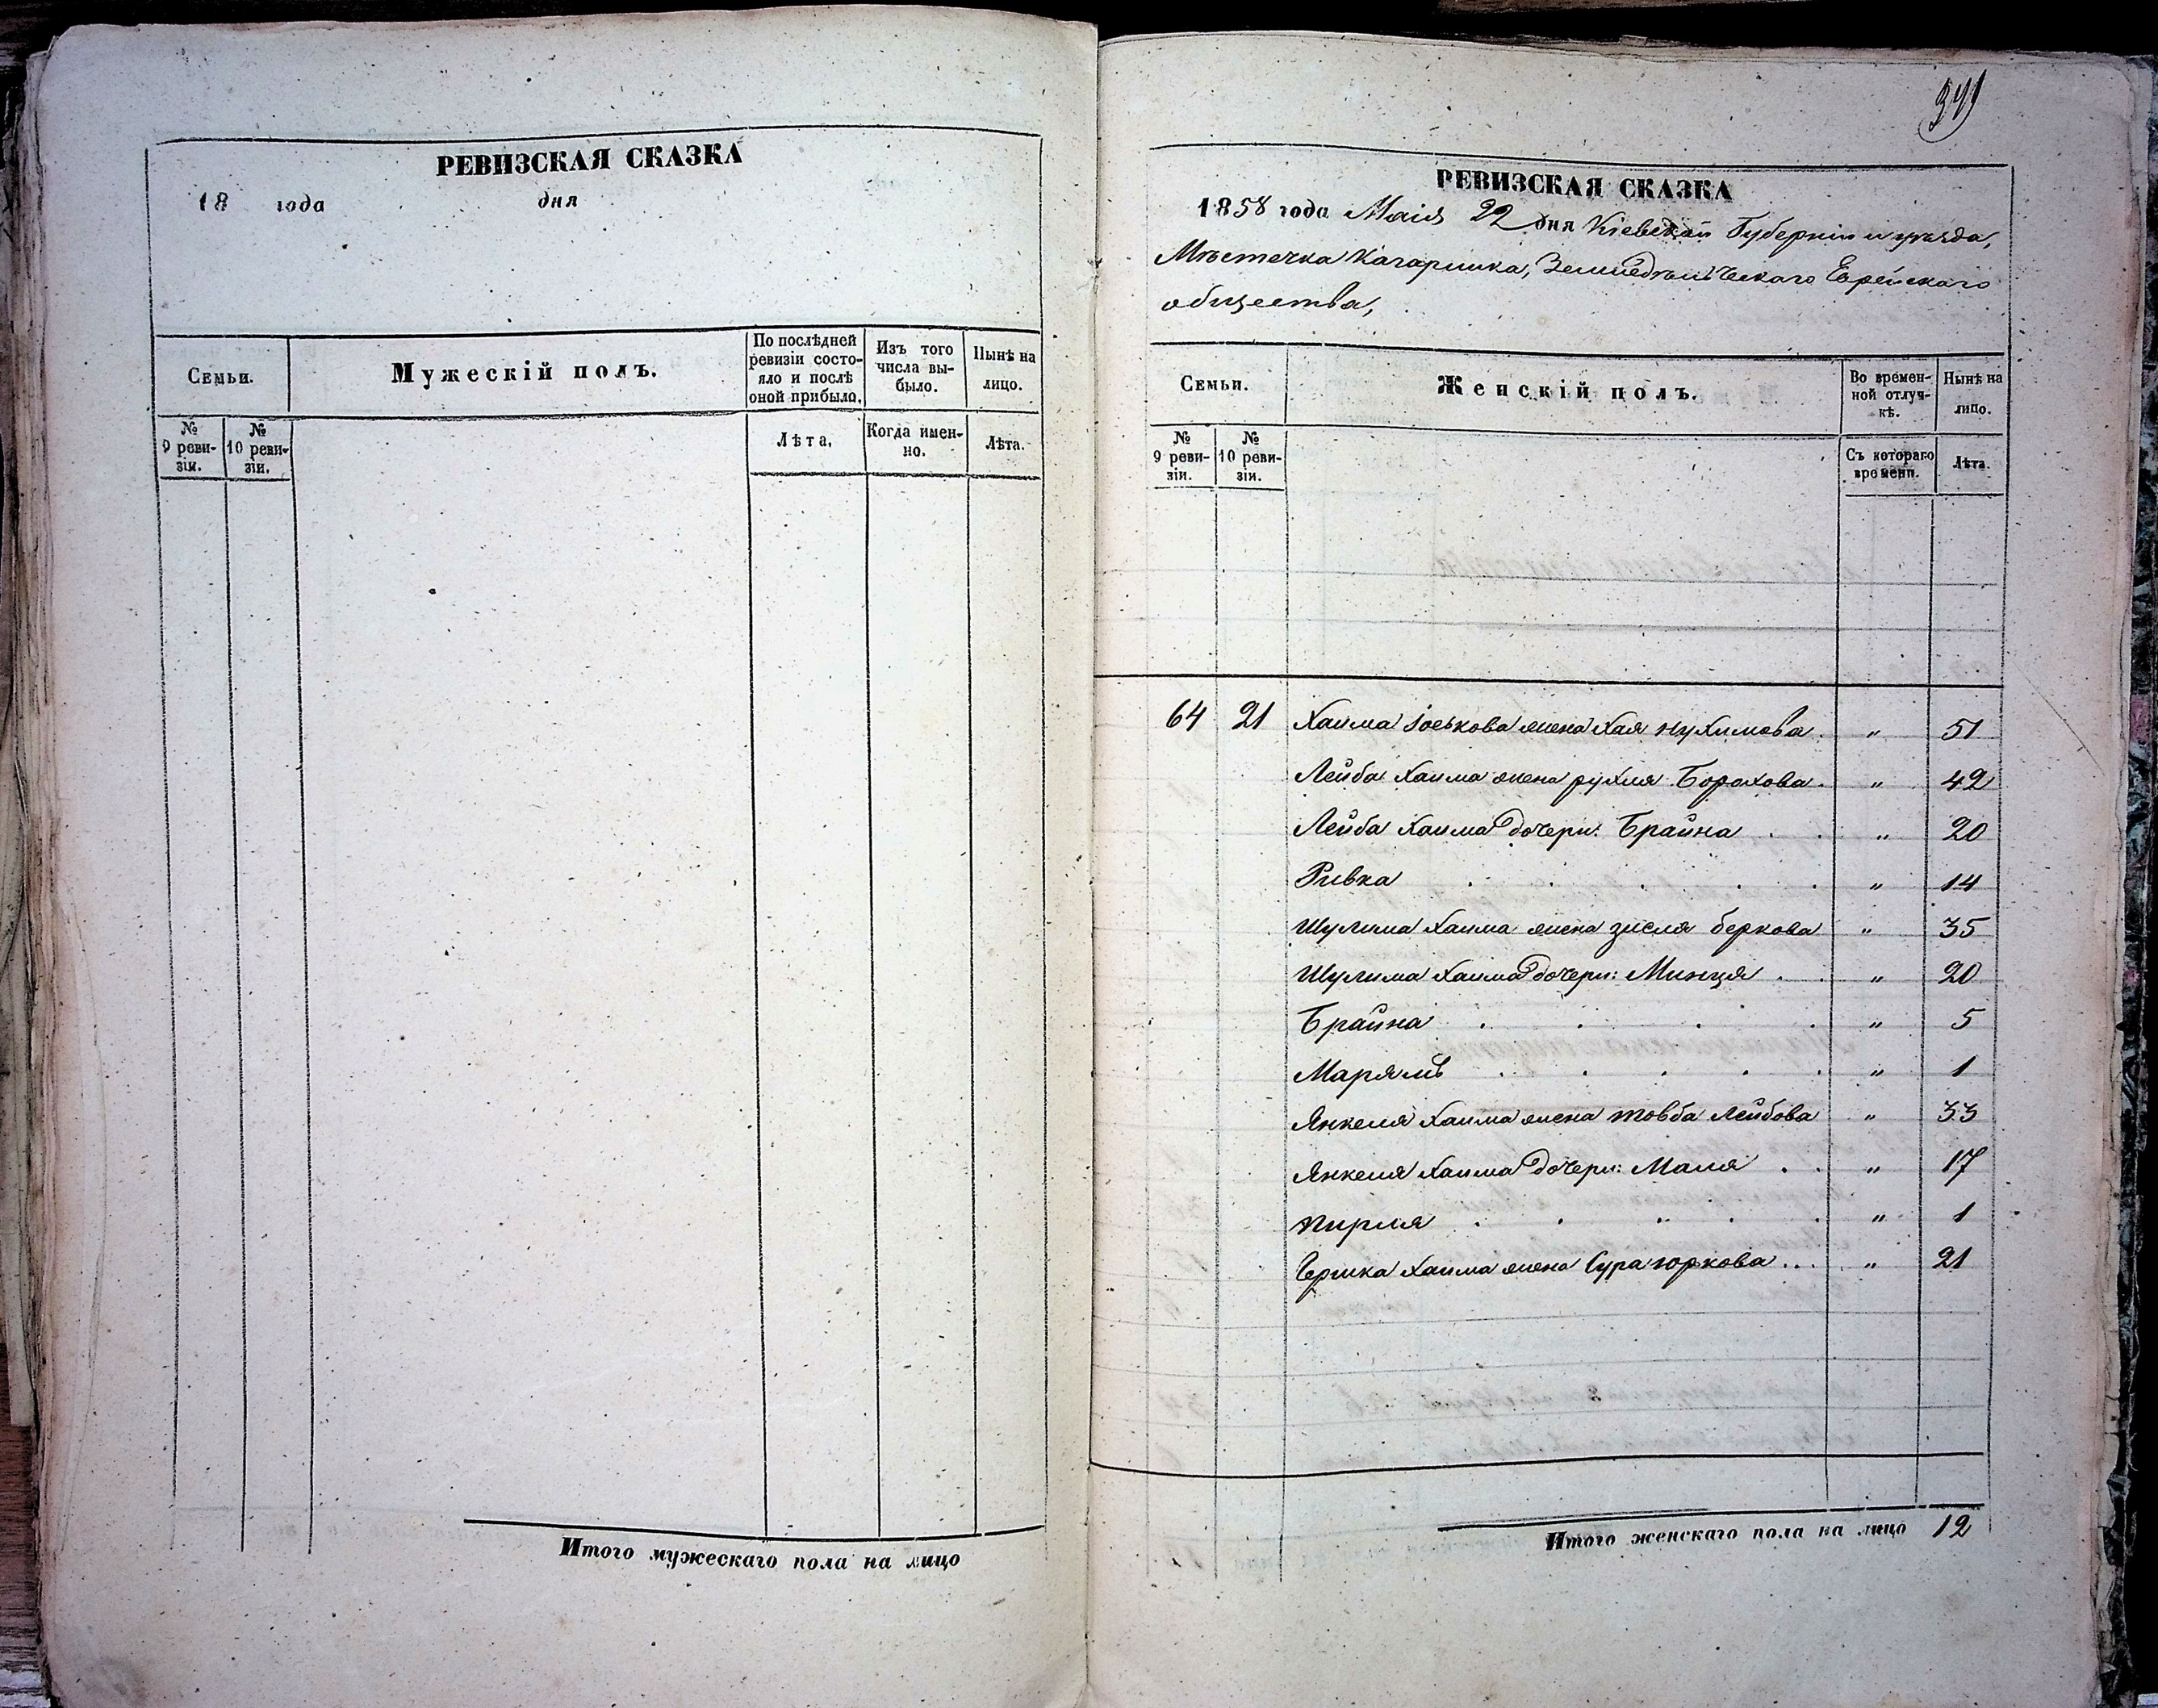 РЕВИЗСКАЯ СКАЗКА
18 года дня
Семьи.
Мужескій полъ.
По послѣдней ревизіи состо-яло и послѣ оной прибыло.
Изъ того числа вы-было.
Нынѣ на лицо.
№ 9 реви-зіи.
№ 10 реви-зіи.
Лѣта.
Когда имен-но.
Лѣта.
Итого мужескаго пола на лицо
РЕВИЗСКАЯ СКАЗКА
1858 года Маія 22 дня Кіевской Губерніи и уѣзда,
Мѣстечка Кагарлика, Земледѣльческаго Еврейскаго
общества,
Семьи.
Женскій полъ.
Во времен-ной отлуч-кѣ.
Нынѣ на лицо.
№ 9 реви-зіи.
№ 10 реви-зіи.
Съ котораго времени.
Лѣта.
64 21 Хаима Іоськова жена Хая нухимова . " 51
Лейба Хаима жена рухля Борохова . " 42
Лейба Хаима дочери: Брайна . . " 20
Ривка . . . . . " 14
Шулима Хаима жена зисля беркова " 35
Шулима Хаима дочери: Минця . . " 20
Брайна . . . . " 5
Марямъ . . . . . " 1
Янкеля Хаима жена товба Лейбова " 33
Янкеля Хаима дочери: Маля . . " 17
пирля . . . . . " 1
Гершка Хаима жена Сура юркова ... " 21
Итого женскаго пола на лицо 12